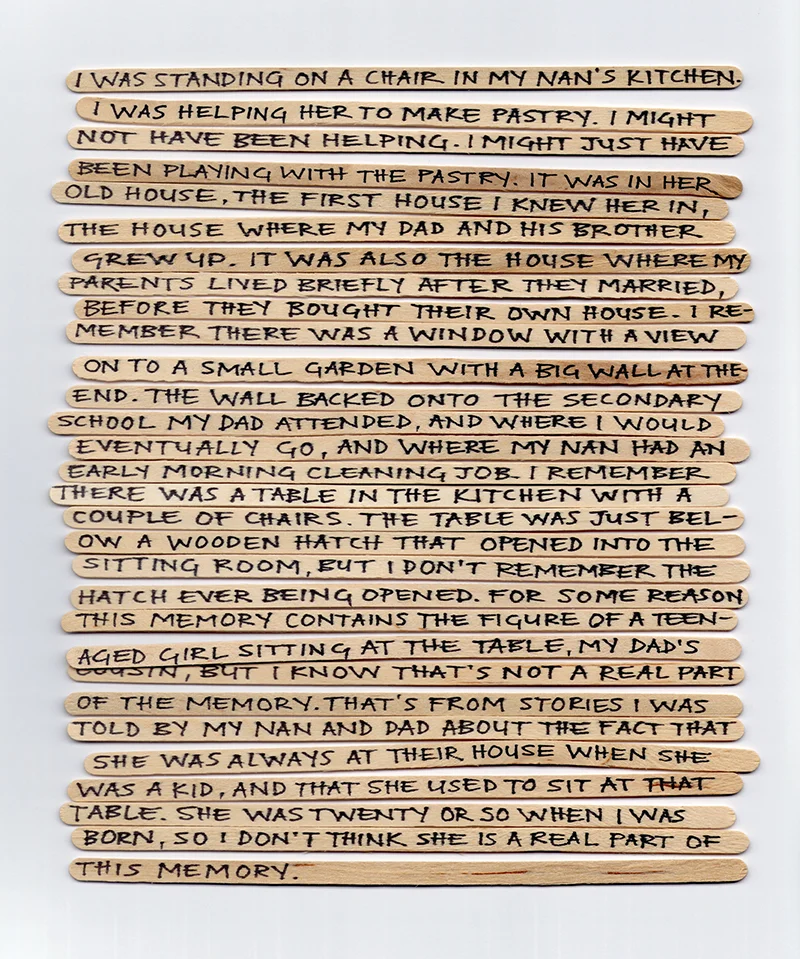 I WAS STANDING ON A CHAIR IN MY NAN'S KITCHEN.
I WAS HELPING HER TO MAKE PASTRY. I MIGHT
NOT HAVE BEEN HELPING. I MIGHT JUST HAVE
BEEN PLAYING WITH THE PASTRY. IT WAS IN HER
OLD HOUSE, THE FIRST HOUSE I KNEW HER IN,
THE HOUSE WHERE MY DAD AND HIS BROTHER
GREW UP. IT WAS ALSO THE HOUSE WHERE MY
PARENTS LIVED BRIEFLY AFTER THEY MARRIED,
BEFORE THEY BOUGHT THEIR OWN HOUSE. I RE-
MEMBER THERE WAS A WINDOW WITH A VIEW
ON TO A SMALL GARDEN WITH A BIG WALL AT THE
END. THE WALL BACKED ONTO THE SECONDARY
SCHOOL MY DAD ATTENDED, AND WHERE I WOULD
EVENTUALLY GO, AND WHERE MY NAN HAD AN
EARLY MORNING CLEANING JOB. I REMEMBER
THERE WAS A TABLE IN THE KITCHEN WITH A
COUPLE OF CHAIRS. THE TABLE WAS JUST BEL-
OW A WOODEN HATCH THAT OPENED INTO THE
SITTING ROOM, BUT I DON'T REMEMBER THE
HATCH EVER BEING OPENED. FOR SOME REASON
THIS MEMORY CONTAINS THE FIGURE OF A TEEN-
AGED GIRL SITTING AT THE TABLE, MY DAD'S
COUSIN, BUT I KNOW THAT'S NOT A REAL PART
OF THE MEMORY. THAT'S FROM STORIES I WAS
TOLD BY MY NAN AND DAD ABOUT THE FACT THAT
SHE WAS ALWAYS AT THEIR HOUSE WHEN SHE
WAS A KID, AND THAT SHE USED TO SIT AT THAT
TABLE. SHE WAS TWENTY OR SO WHEN I WAS
BORN, SO I DON'T THINK SHE IS A REAL PART OF
THIS MEMORY.